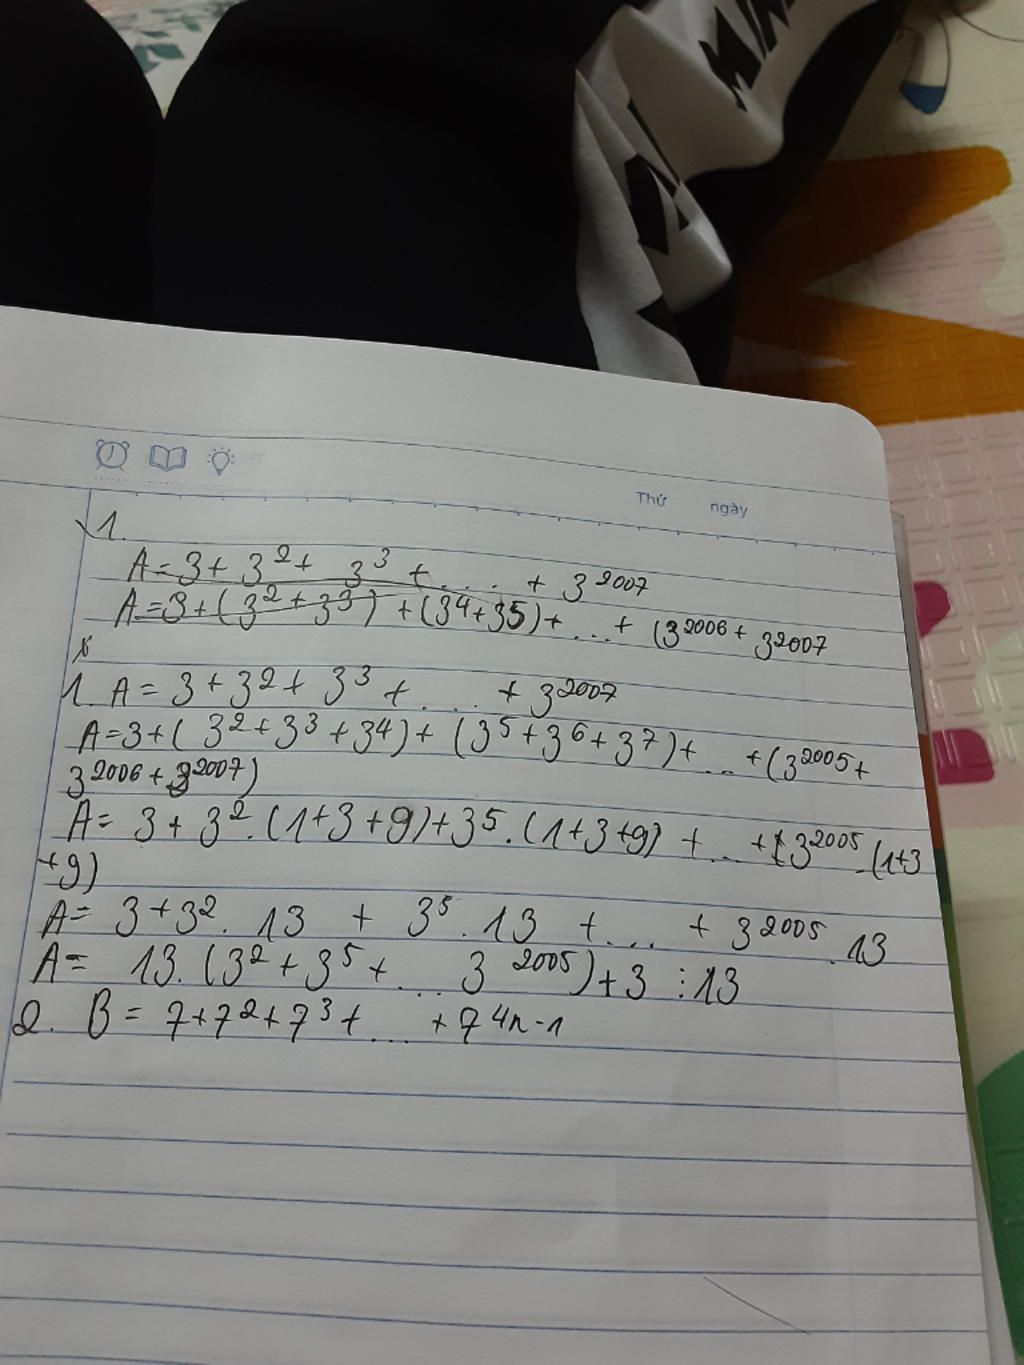 Thứ ngày
1.
A = 3 + 3² + 3³ + .... + 3²⁰⁰⁷
A = 3 + (3² + 3³) + (3⁴ + 35) + ... + (3²⁰⁰⁶ + 3²⁰⁰⁷
1. A = 3 + 3² + 3³ + .... + 3²⁰⁰⁷
A = 3 + (3² + 3³ + 3⁴) + (3⁵ + 3⁶ + 3⁷) + ... + (3²⁰⁰⁵ +
3²⁰⁰⁶ + 3²⁰⁰⁷)
A = 3 + 3².(1+3+9) + 3⁵.(1+3+9) + ... + (3²⁰⁰⁵.(1+3
+9)
A = 3 + 3².13 + 3⁵.13 + .... + 3²⁰⁰⁵.13
A = 13.(3² + 3⁵ + .... 3²⁰⁰⁵) + 3 ⋮ 13
2. B = 7 + 7² + 7³ + .... + 7⁴ⁿ⁻¹